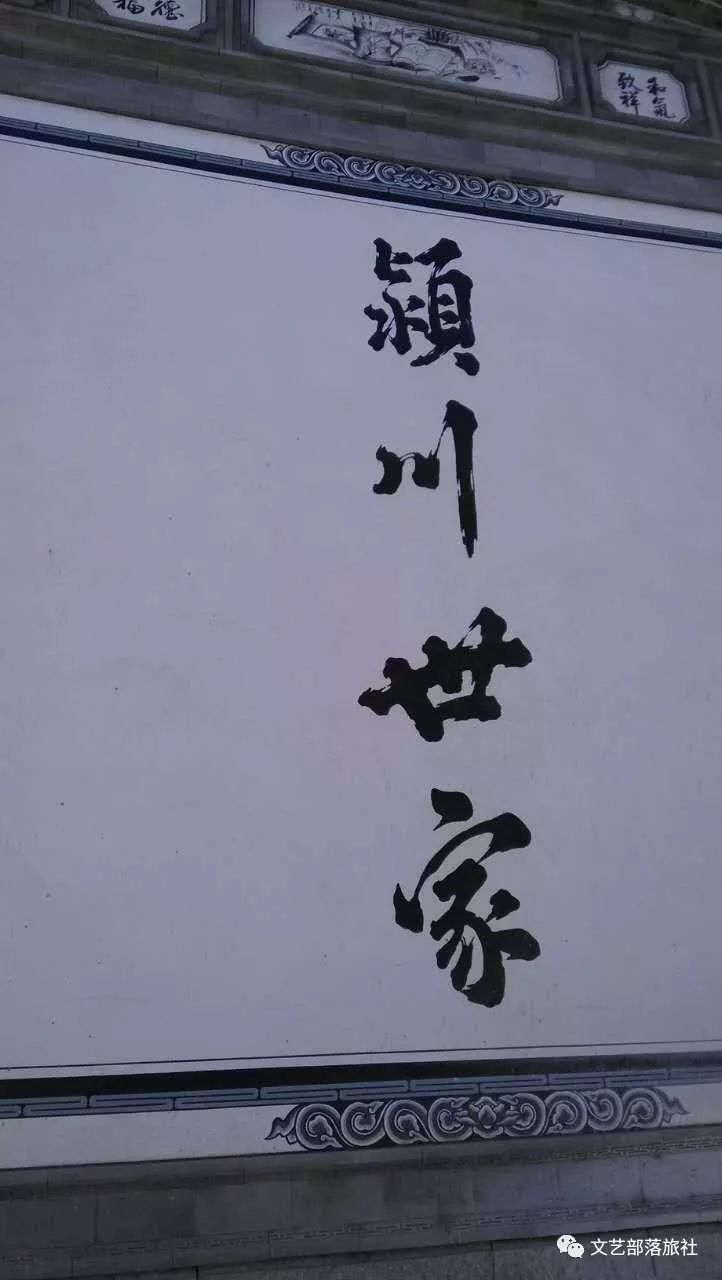 和氣
致祥
潁川世家
文艺部落旅社